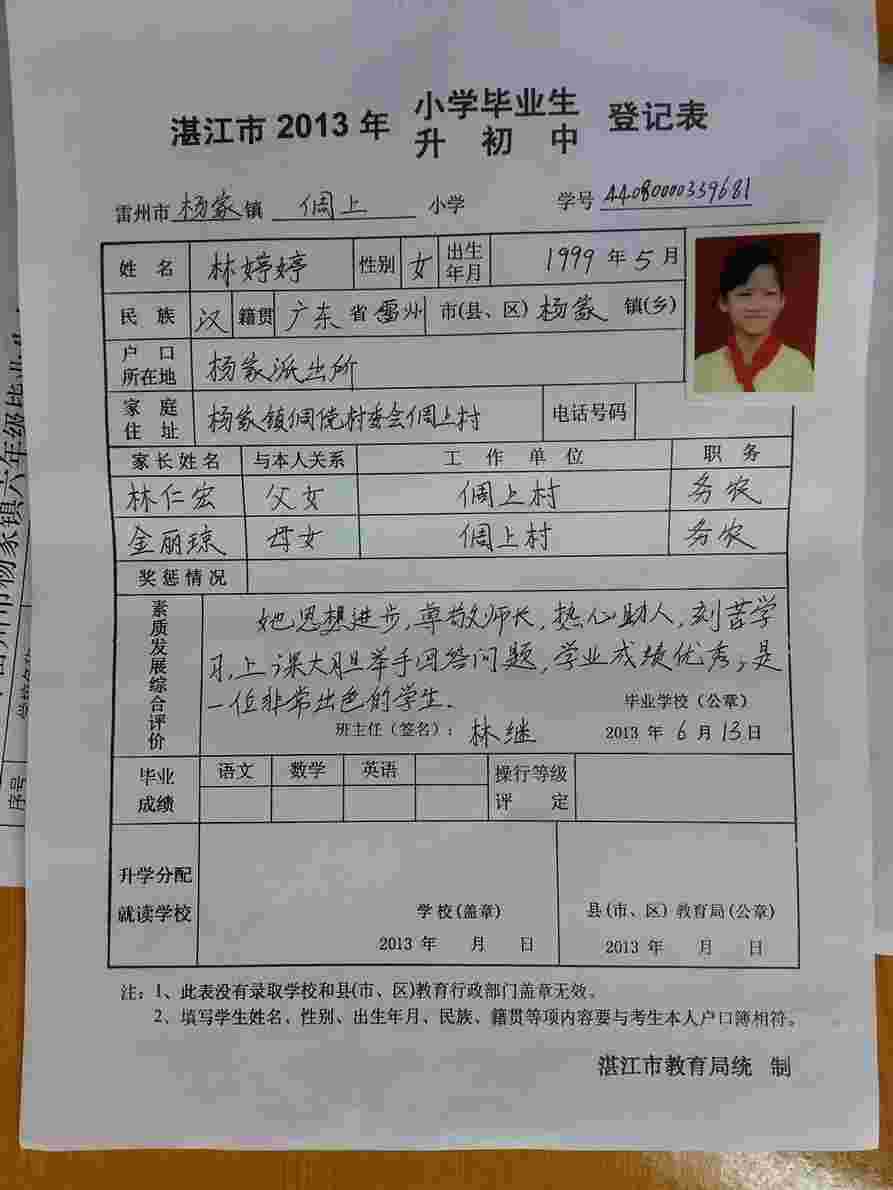 湛江市2013年 小学毕业生 登记表
升 初 中
雷州市 杨家 镇 倜上 小学 学号 44080000339681
姓 名 林婷婷 性别 女 出生年月 1999 年 5 月
民 族 汉 籍贯 广东 省 雷州 市(县、区) 杨家 镇(乡)
户 口
所在地 杨家派出所
家 庭
住 址 杨家镇倜侥村委会倜上村 电话号码
家长姓名 与本人关系 工 作 单 位 职 务
林仁宏 父女 倜上村 务农
金丽琼 母女 倜上村 务农
奖惩情况
素质发展综合评价
她思想进步,尊敬师长,热心助人,刻苦学
习,上课大胆举手回答问题,学业成绩优秀,是
一位非常出色的学生.
毕业学校(公章)
班主任(签名): 林继 2013 年 6 月 13 日
毕业 语文 数学 英语 操行等级
成绩 评 定
升学分配
就读学校
学校(盖章) 县(市、区)教育局(公章)
2013 年 月 日 2013 年 月 日
注:1、此表没有录取学校和县(市、区)教育行政部门盖章无效。
2、填写学生姓名、性别、出生年月、民族、籍贯等项内容要与考生本人户口簿相符。
湛江市教育局统 制
序号